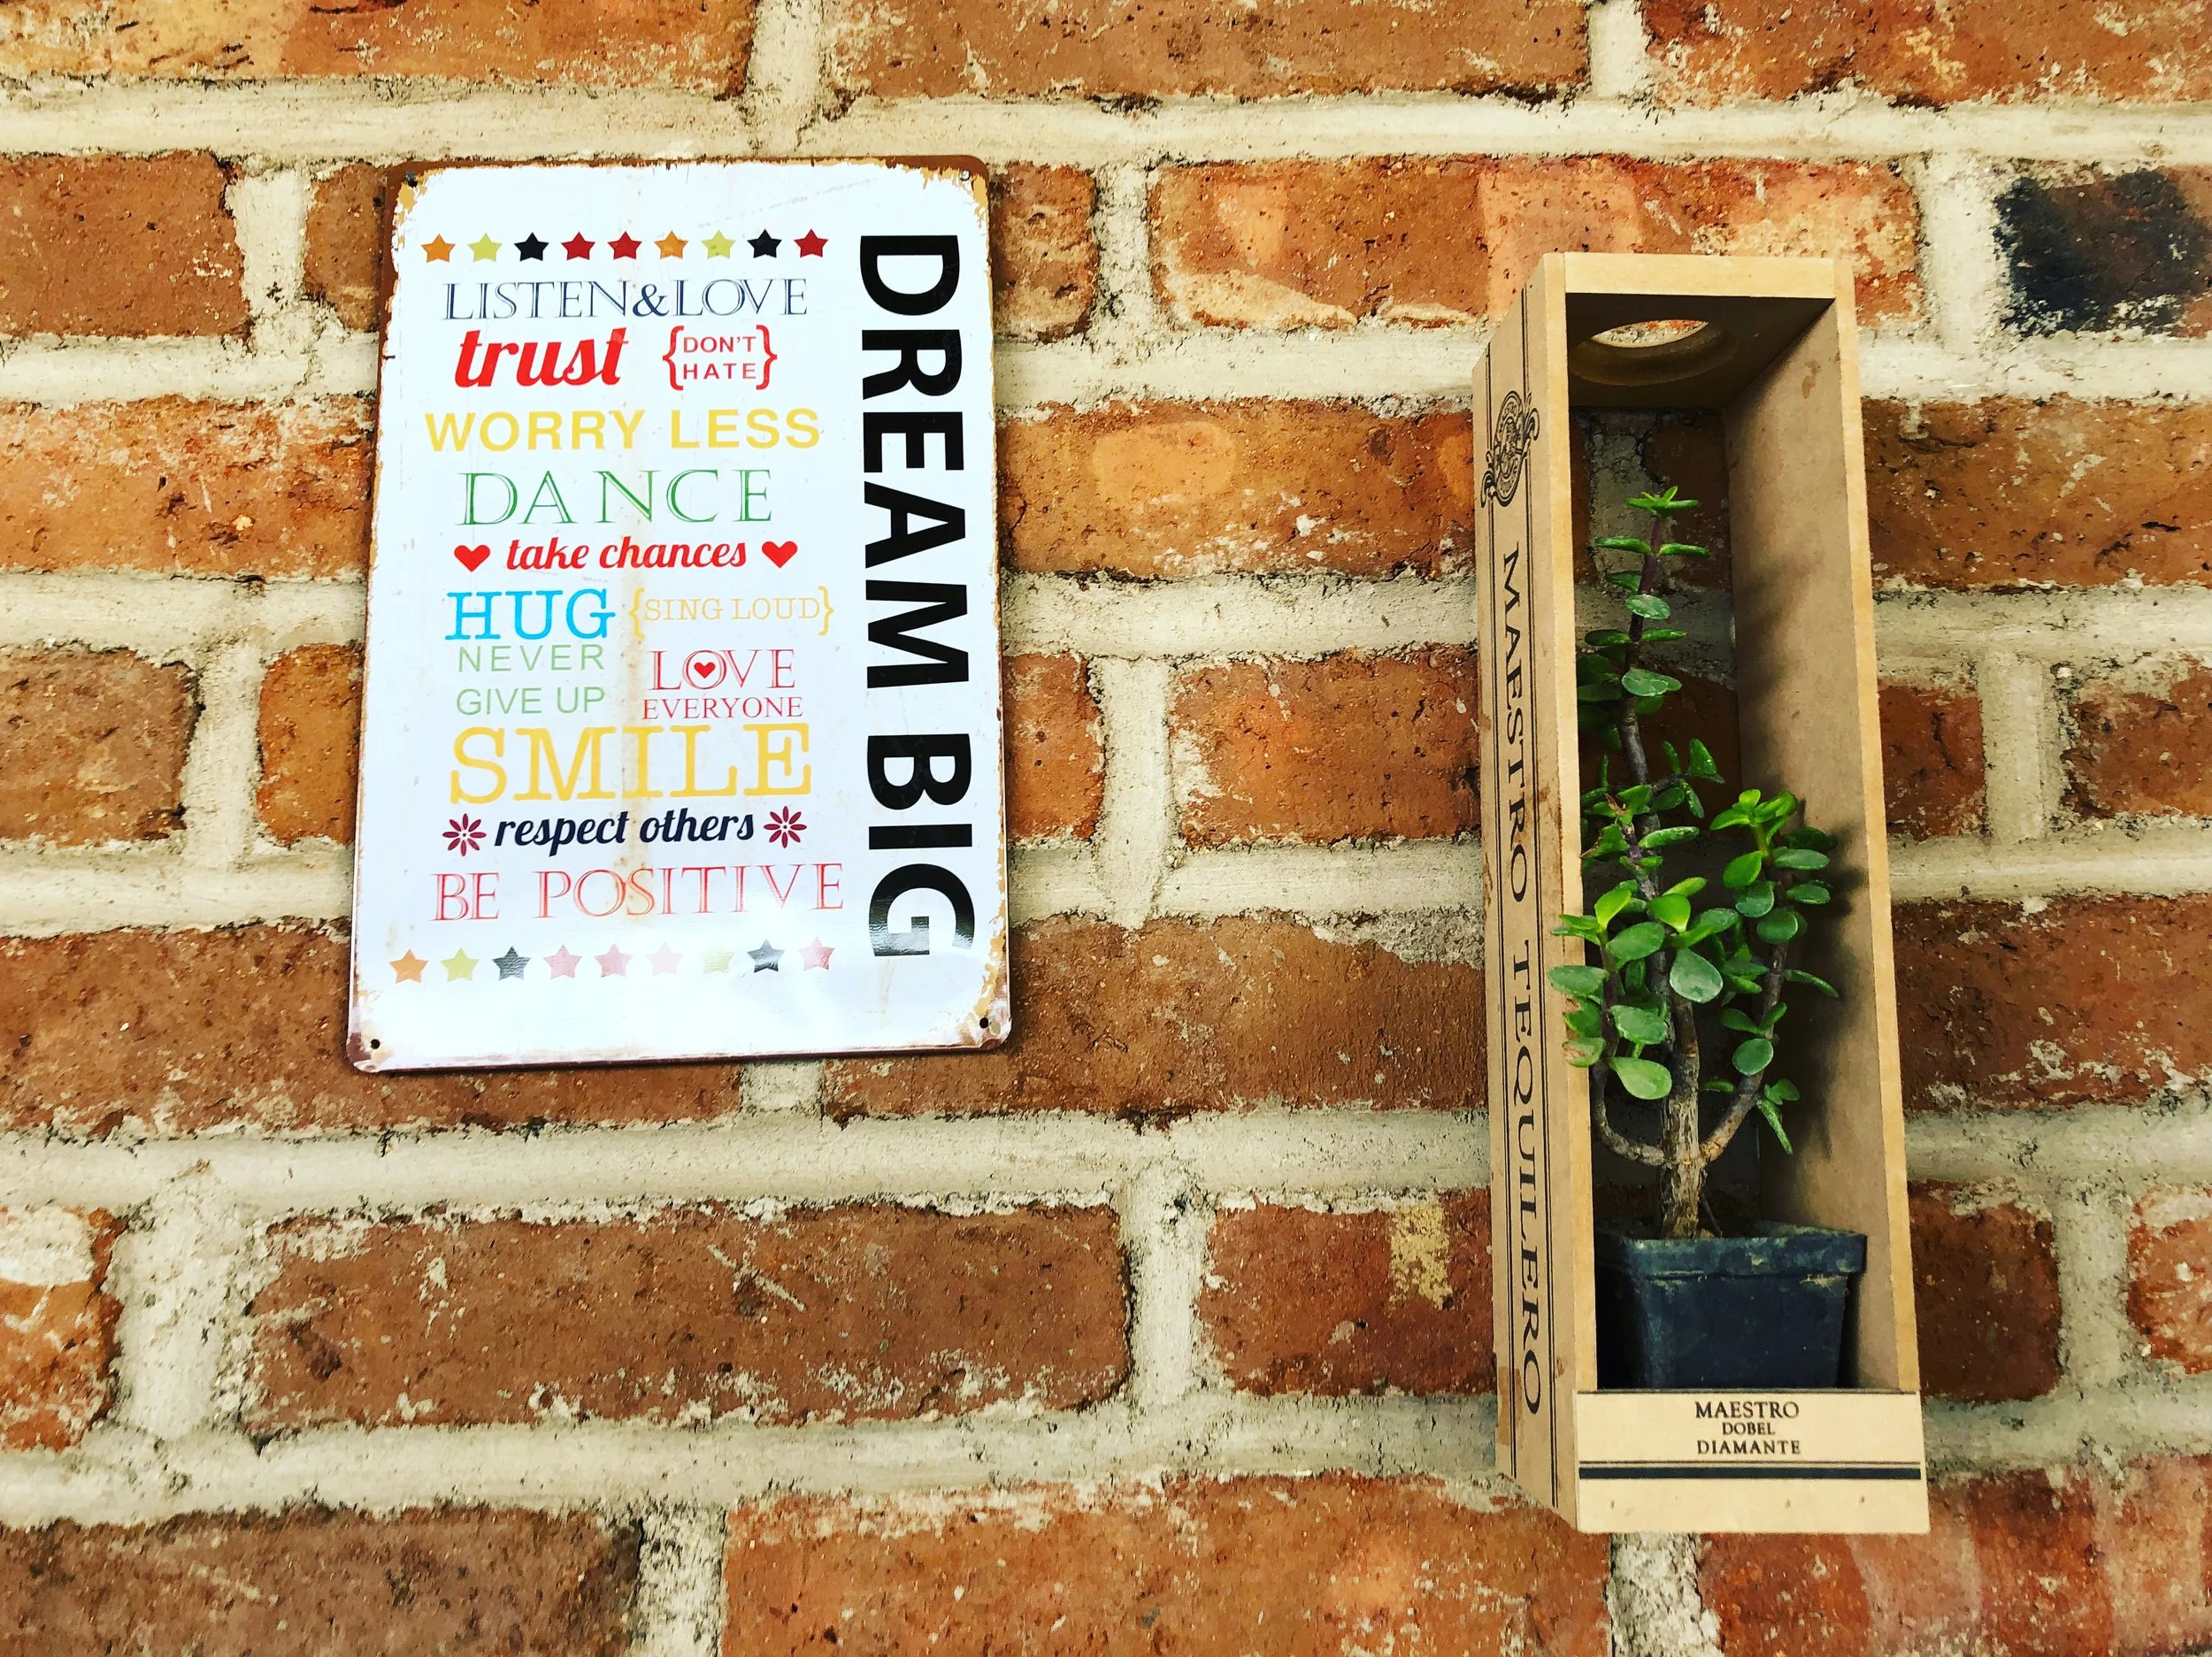 LISTEN&LOVE
trust {DON'T HATE}
WORRY LESS
DANCE
take chances
HUG {SING LOUD}
NEVER
GIVE UP
LOVE
EVERYONE
SMILE
respect others
BE POSITIVE
DREAM BIG
MAESTRO TEQUILERO
MAESTRO
DOBEL
DIAMANTE